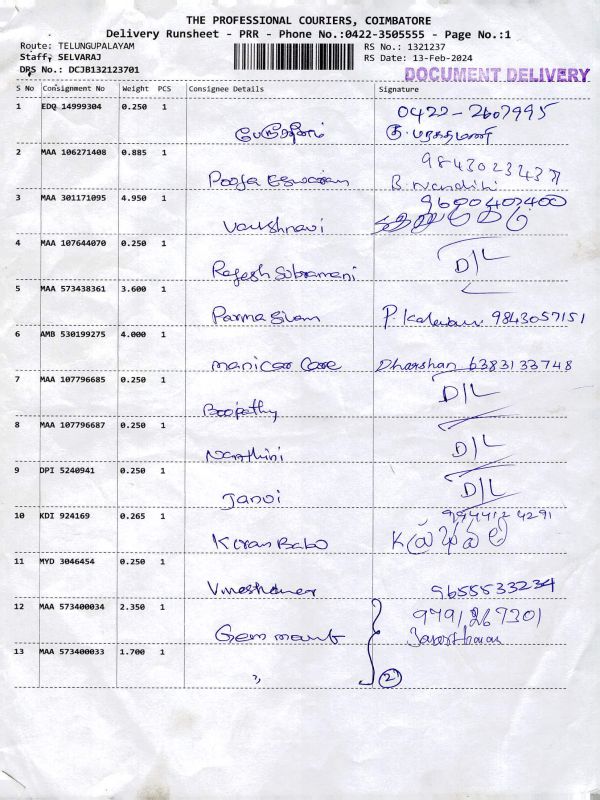 THE PROFESSIONAL COURIERS, COIMBATORE
Delivery Runsheet - PRR - Phone No.:0422-3505555 - Page No.:1
Route: TELUNGUPALAYAM
RS No.: 1321237
Staff: SELVARAJ
RS Date: 13-Feb-2024
DRS No.: DCJB132123701
DOCUMENT DELIVERY
S No Consignment No Weight PCS Consignee Details Signature
1 EDQ 14999304 0.250 1 0422-2607995
2 MAA 106271408 0.885 1 Pooja Eswaran
B. Nandini
3 MAA 301171095 4.950 1 9600402400
Vaishnavi
4 MAA 107644070 0.250 1 Rajesh Subramani D/L
5 MAA 573438361 3.600 1 Parma Sivam 9843057151
6 AMB 530199275 4.000 1 manicar Care Dharshan 6383133748
7 MAA 107796685 0.250 1 Boopathy D/L
8 MAA 107796687 0.250 1 D/L
9 DPI 5240941 0.250 1 Janvi D/L
10 KDI 924169 0.265 1 Kiran Babo
11 MYD 3046454 0.250 1 9655533234
12 MAA 573400034 2.350 1 9791267301
Gem
13 MAA 573400033 1.700 1 " 2